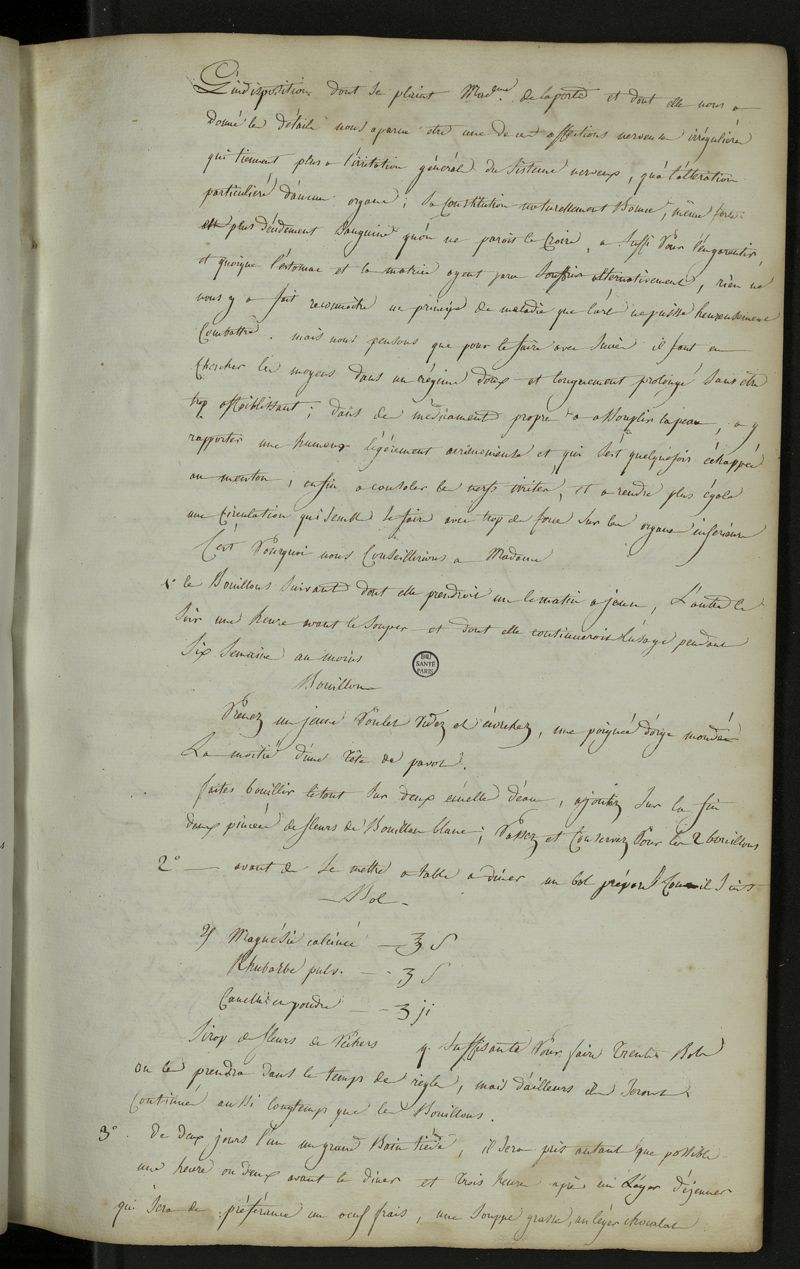 L'indisposition dont se plaint Mad.me delaporte et dont elle nous a
donné le détail nous a paru être une de ces affections nerveuse irrégulière
qui tiennent plus a l'irritation général du sisteme nerveux, qu'à l'altération
particulierè d'aucun organe; sa constitution naturellement Bonne, même forte
plus d'eudement Sanguine qu'on ne paroit le Croire, a suffi Pour l'en garentir,
et quoique l'estomac et la matrice ayent paru Souffrir alternativement, rien ne
nous y a fait reconnoitre un principe de maladie que l'art ne puisse heureusement
Combattre. mais nous pensons que pour le faire avec succès il faut en
Chercher les moyens dans un régime doux et longuement prolongé Sans être
trop affoiblissant; dans de médicament propre a assouplir la peau, a y
rapporter une humeur légérement acrimonieuse et qui s'est quelquefois échappée
au menton, enfin a consoler les nerfs irrités, et a rendre plus égale
une Circulation qui semble se faire avec trop de force Sur les organe inferieure
C'est Pourquoi nous Conseillerions a Madame
1° le Bouillons Suivant dont elle prendroit un le matin a jeun, L'autre le
Soir une heure avant le Souper et dont elle continueroit l'usage pendant
Six Semaine au moins
BIU SANTÉ PARIS
Bouillon
Prenez un jeune Poulet Videz et écorchez, une poignée d'orge mondée
La moitié d'une Tête de pavot.
faites bouillir letout Sur deux écuelle d'eau, ajoutez Sur la fin
deux pincée de fleurs de Bouillon blanc; Passez et Conservez Pour les 2 bouillons
2° — avant de se mettre a table a diner un bol préparé Comme il suit
— Bol —
♃ Magnésie calcinée — ʒ S
Rhubarbe pulv. — ʒ S
Canelle en poudre — ʒ ji
Sirop de fleurs de Pêchers q. Suffisante Pour faire Trente Bols
on les prendra dans le temps de règle, mais d'ailleurs ils Seront
Continué aussi longtemps que les Bouillons.
3°. de deux jours l'un un grand Bain tiède, il sera pris autant que possible
une heure ou deux avant le diner et Trois heure après un Léger déjeuner
qui Sera de préférance un œuf frais, une Souppe grasse, un léger chocolat